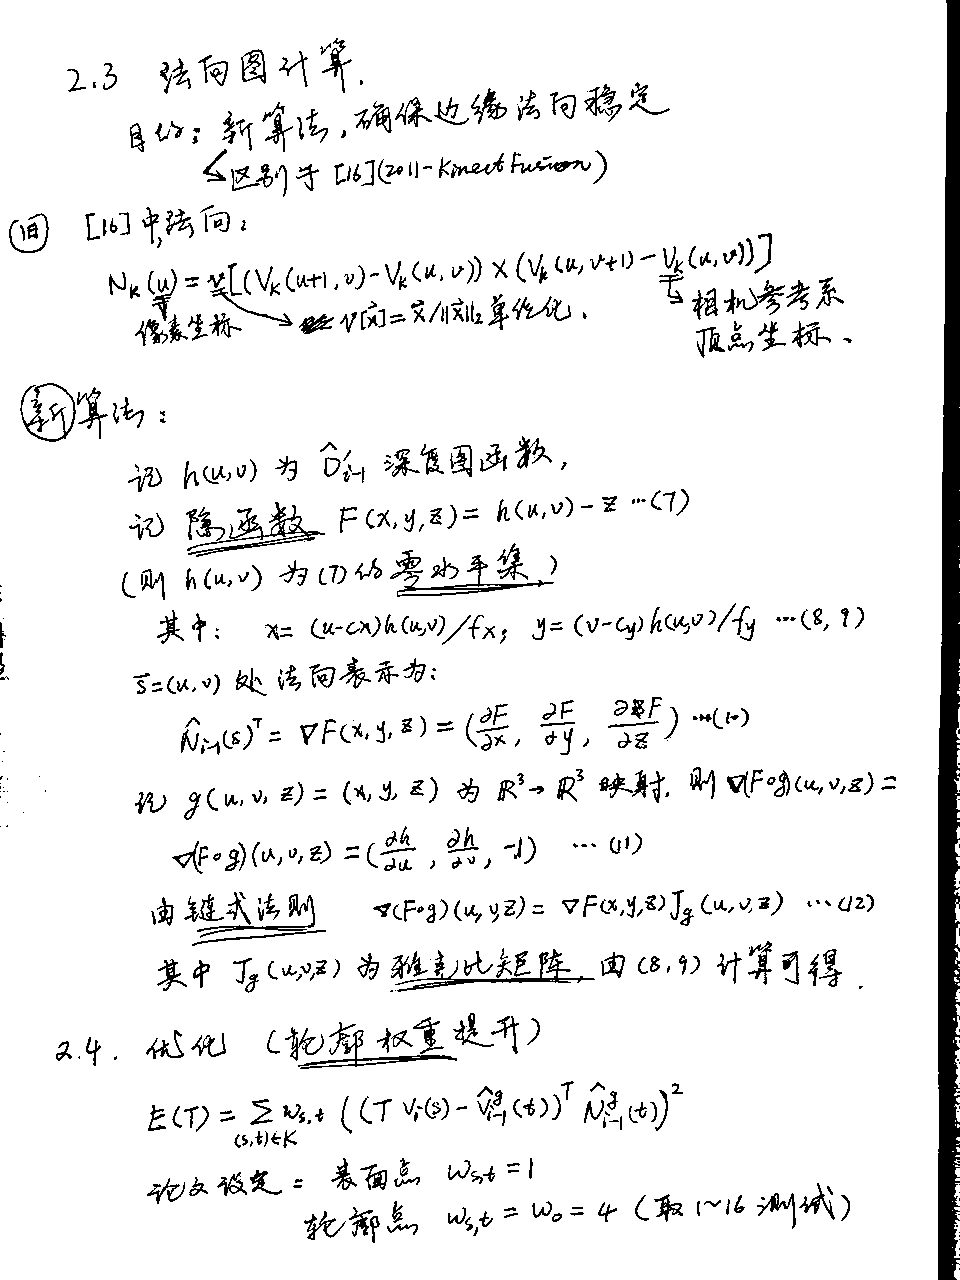 2.3 法向图计算.
目的: 新算法, 确保边缘法向稳定
区别于 [16](2011-KinectFusion)
旧 [16]中法向:
N_k(u) = ν[(V_k(u+1, v) - V_k(u, v)) × (V_k(u, v+1) - V_k(u, v))]
像素坐标 → ν[x] = x/‖x‖₂ 单位化. → 相机参考系
顶点坐标.
新算法:
记 h(u,v) 为 D̂'_{i-1} 深度图函数,
记 隐函数 F(x, y, z) = h(u,v) - z …(7)
(则 h(u,v) 为(7)的零水平集,)
其中: x = (u-cx)h(u,v)/fx; y = (v-cy)h(u,v)/fy …(8, 9)
s=(u,v) 处 法向表示为:
N̂_{i-1}(s)^T = ∇F(x, y, z) = (∂F/∂x, ∂F/∂y, ∂F/∂z) …(10)
记 g(u, v, z) = (x, y, z) 为 R³→R³ 映射, 则 ∇(F∘g)(u,v,z) =
∇(F∘g)(u,v,z) = (∂h/∂u, ∂h/∂v, -1) …(11)
由链式法则 ∇(F∘g)(u,v,z) = ∇F(x,y,z)J_g(u,v,z) …(12)
其中 J_g(u,v,z) 为雅克比矩阵, 由(8,9)计算可得.
2.4. 优化 (轮廓权重提升)
E(T) = Σ_{(s,t)∈K} w_{s,t} ((T V_i(s) - V̂^g_{i-1}(t))^T N̂^g_{i-1}(t))²
论文设定: 表面点 w_{s,t} = 1
轮廓点 w_{s,t} = w_0 = 4 (取1~16测试)